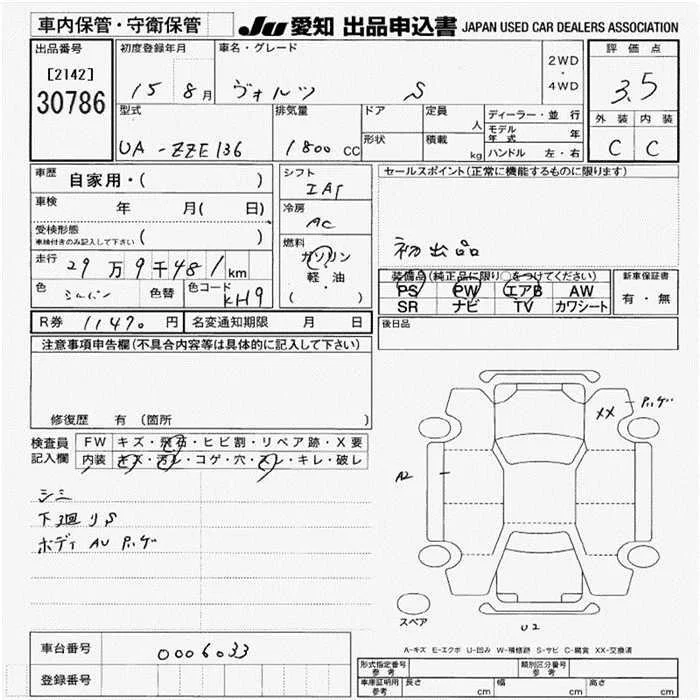 車内保管・守衛保管
JU 愛知 出品申込書 JAPAN USED CAR DEALERS ASSOCIATION
出品番号
[2142]
30786
初度登録年月
15 8月
車名・グレード
ヴォルツ S
2WD
・
4WD
評価点
3.5
外装 内装
C C
型式
UA-ZZE136
排気量
1800 CC
ドア
形状
定員 人
積載 kg
ディーラー・並行
モデル年式 年
ハンドル 左・右
車歴 自家用・( )
車検 年 月( 日)
受検形態
車検付きのみ記入して下さい ( )
走行 29万9千481km
色 シルバー 色替 色コード KH9
シフト
IAT
冷房
AC
燃料
ガソリン
軽・油
( )
セールスポイント(正常に機能するものに限ります)
初出品
装備品(純正品に限り○をつけてください)
PS PW エアB AW
SR ナビ TV カワシート
新車保証書
有・無
R券 11470円 名変通知期限 月 日
後日品
注意事項申告欄(不具合内容等は具体的に記入して下さい)
修復歴 有 (箇所 )
検査員記入欄
FW キズ・飛石・ヒビ割・リペア跡・X要
内装 キズ・汚レ・コゲ・穴・スレ・キレ・破レ
シミ
下廻りS
ボディAUハゲ
XX ハゲ
A2
スペア
U2
A-キズ E-エクボ U-凹み W-補修跡 S-サビ C-腐食 XX-交換済
車台番号 0006033
登録番号
形式指定番号 参考
類別区分番号 参考
車庫証明用 参考 長さ cm 幅 cm 高さ cm